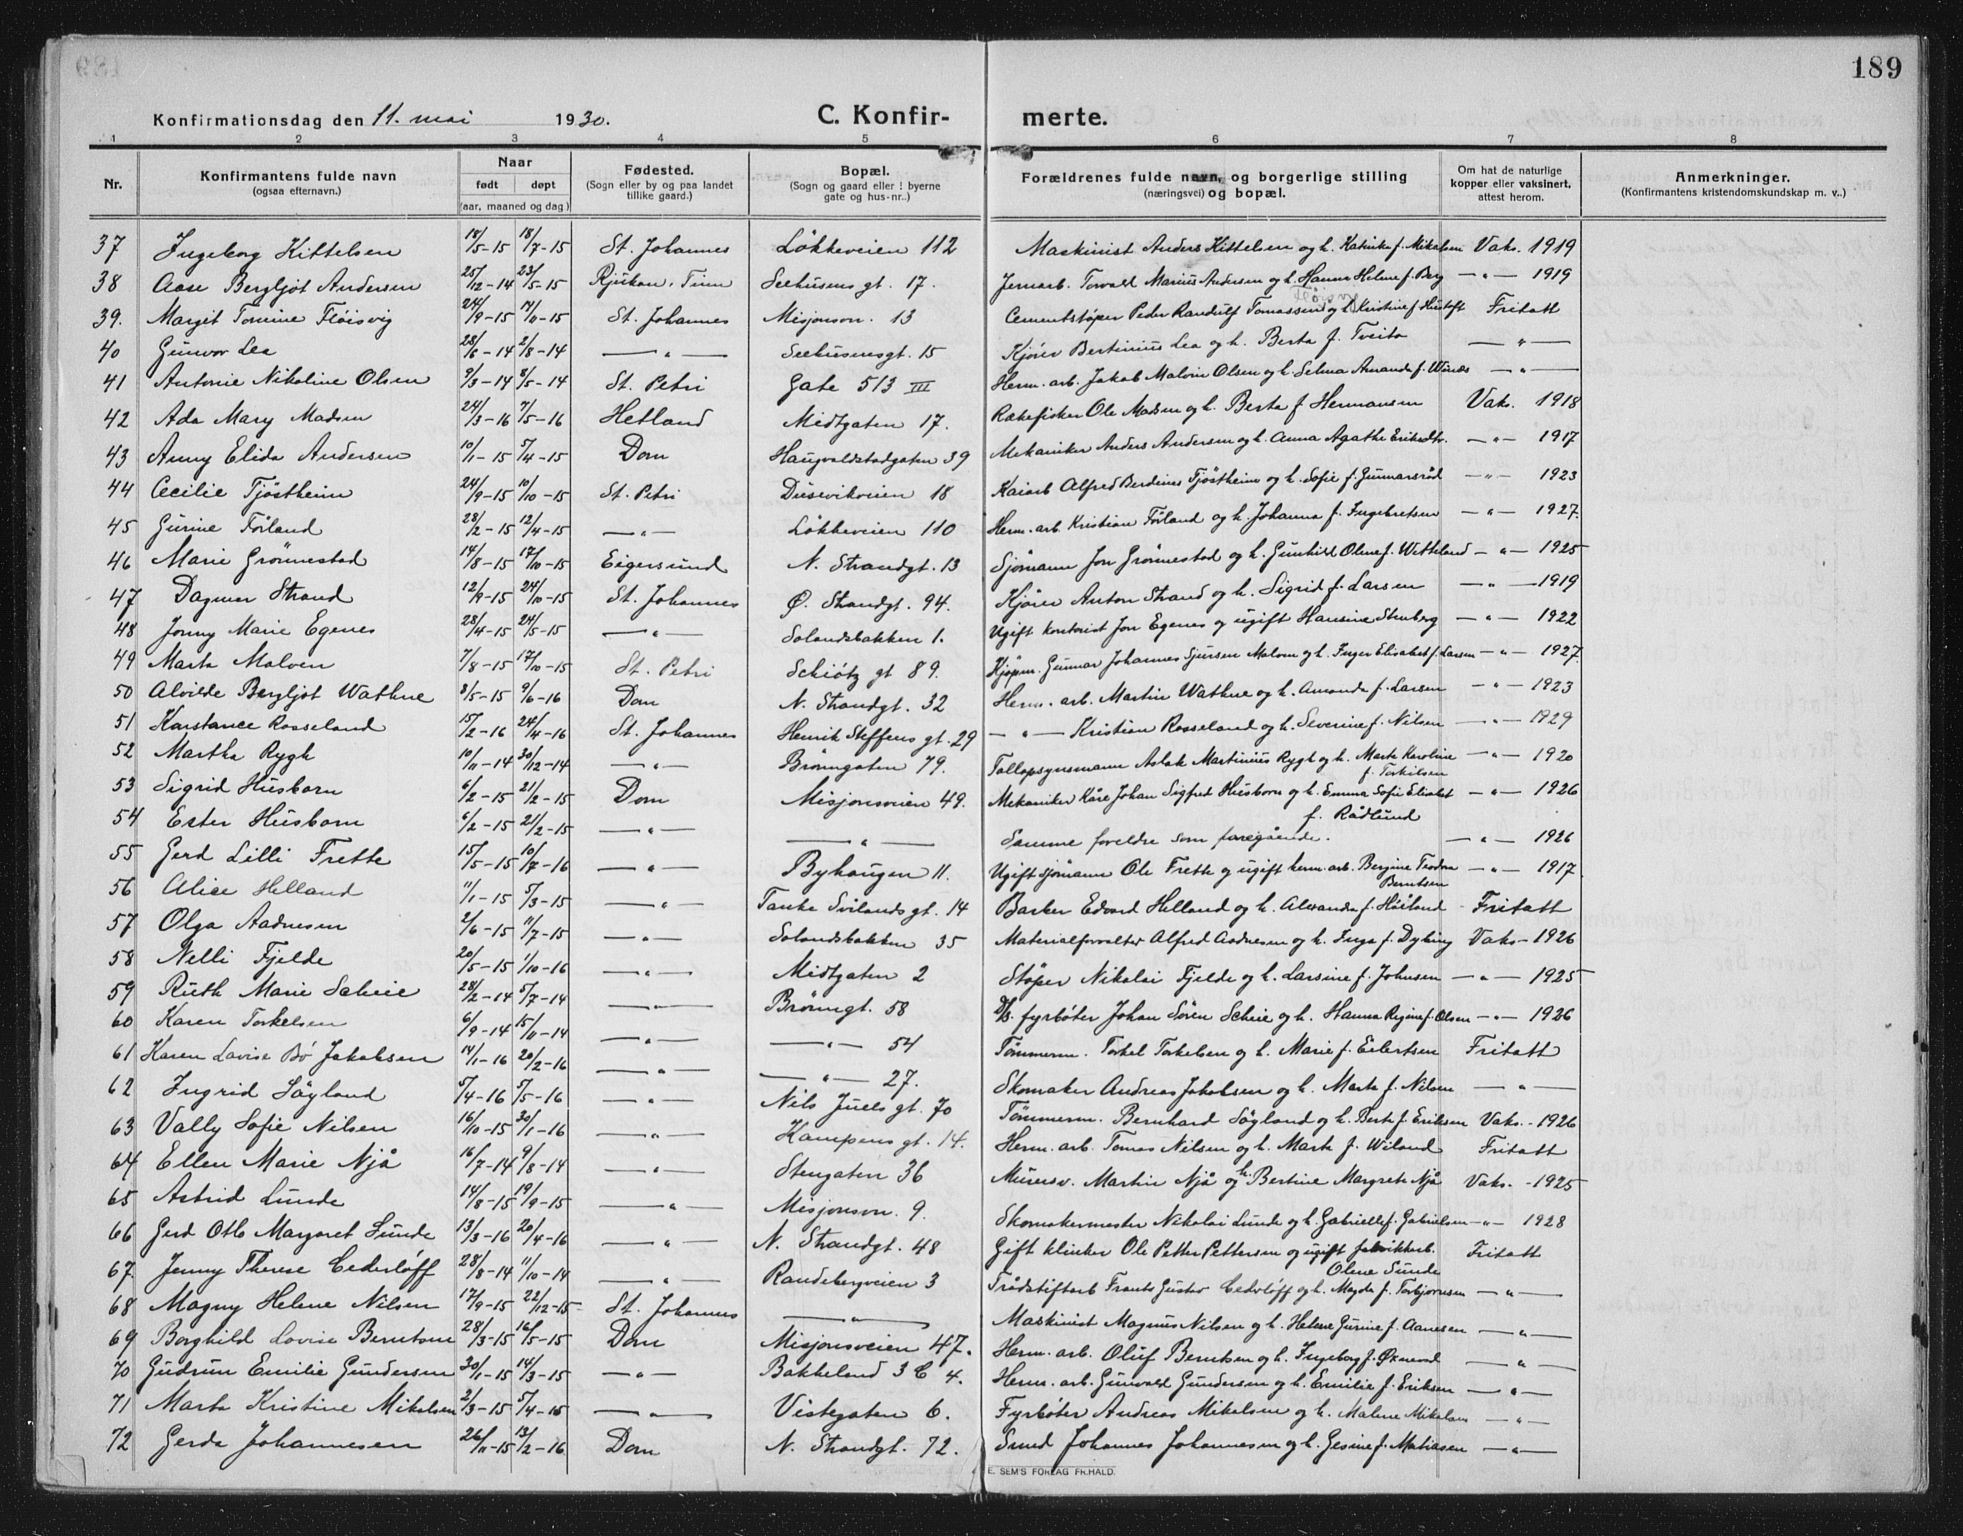 189
Konfirmationsdag den 11. mai 1930. C. Konfirmerte.
1 2 3 4 5 6 7 8
Nr. Konfirmantens fulde navn (ogsaa efternavn.) Naar født døpt (aar, maaned og dag) Fødested. (Sogn eller by og paa landet tillike gaard.) Bopæl. (Sogn og gaard eller i byerne gate og hus-nr..) Forældrenes fulde navn, og borgerlige stilling (næringsvei) og bopæl. Om hat de naturlige kopper eller vaksinert, attest herom. Anmerkninger. (Konfirmantens kristendomskundskap m. v..)
37 Ingeborg Kittelsen 18/5-15 18/7-15 St. Johannes Løkkeveien 112 Maskinist Anders Kittelsen og h. Katinka f. Mikalsen Vaks. 1919
38 Aase Bergljot Andersen 25/12-14 23/5-15 Rjukan, Tinn Seehusens gt. 17. Jernarb. Torvald Marius Andersen og h. Hanna Helene f. Berg -"- 1919
39. Margit Tomine Fløisvig 24/9-15 14/11-15 St. Johannes Misjonsv. 13 Cementstøper Peder Randulf Tomassen Fløisvig og h. Kristine f. Hustoft Fritatt
40 Gunvor Lea 28/6-14 2/8-14 -"- Seehusensgt. 15 Kjører Bertinius Lea og h. Berta f. Tveita -"-
41 Antonie Nikoline Olsen 9/3-14 8/5-14 St. Petri Gate 513 III Herm. arb. Jakob Malvin Olsen og h. Selma Amanda f. Winæs -"-
42 Ada Mary Madsen 24/3-16 7/5-16 Hetland Midtgaten 17. Rækefisker Ole Madsen og h. Berta f. Hermansen Vaks. 1918
43 Anny Elida Andersen 10/1-15 5/4-15 Dom Haugvaldstadgaten 39 Mekaniker Anders Andersen og h. Anna Agathe Eriksdtr. -"- 1917
44 Cecilie Tjøstheim 24/9-15 10/10-15 St. Petri Dusevikveien 18 Kaiarb Alfred Berdines Tjøstheim og h. Sofie f. Gunnarsrød -"- 1923
45 Gurine Førland 28/2-15 12/4-15 -"- Løkkeveien 110 Herm. arb. Kristian Førland og h. Johanna f. Ingebretsen -"- 1927.
46 Marie Grønnestad 14/8-15 17/10-15 Eigersund N. Strandgt. 13 Sjømann Jon Grønnestad og h. Gunhild Oline f. Witteland -"- 1925
47 Dagmar Strand 12/9-15 24/10-15 St. Johannes Ø. Strandgt. 94. Kjører Anton Strand og h. Sigrid f. Larsen -"- 1919
48 Jonny Marie Egenes 28/4-15 24/5-15 -"- Solandsbakken 1. Ugift kontorist Jon Egenes og ugift Hansine Stenberg -"- 1922
49 Marta Malven 7/8-15 17/10-15 St. Petri Schiøtz gt 89. Kjøpm. Gunnar Johannes Sjursen Malven og h. Inger Elisabet f. Larsen -"- 1927.
50 Alvilde Bergljot Wathne 8/5-15 9/6-16 Dom N. Strandgt. 32 Herm. arb. Martin Wathne og h. Amanda f. Larsen -"- 1923
51 Karstance Rosseland 15/2-16 24/4-16 St. Johannes Henrik Steffens gt. 29 -"- Kristian Rosseland og h. Severine f. Nilsen -"- 1929
52 Martha Rygh 10/11-14 30/12-14 -"- Brønngaten 79. Tollopsynsmann Aslak Martinius Rygh og h. Marta Karoline f. Torkilsen -"- 1920
53 Sigrid Husborn 6/2-15 21/2-15 Dom Misjonsveien 49. Mekaniker Kåre Johan Sigfred Husborn og h. Emma Sofie Elisabet f. Rådlund -"- 1926
54 Ester Husborn 6/2-15 21/2-15 -"- -"- Samme foreldre som foregående. -"- 1926
55 Gerd Lilli Frette 15/5-15 10/7-16 -"- Byhaugen 11. Ugift sjømann Ole Frette og ugift herm. arb. Bergine Teodora Berntsen -"- 1917.
56 Alice Helland 11/1-15 5/3-15 -"- Tanke Svilands gt. 14 Barber Edvard Helland og h. Alexandra f. Håland Fritatt
57 Olga Aadnesen 2/6-15 11/7-15 -"- Solandsbakken 35 Materialforvalter Alfred Aadnesen og h. Inga f. Dybing Vaks - 1926
58 Nelli Fjelde 20/5-15 1/10-16 -"- Midtgaten 2 Støper Nikolai Fjelde og h. Larsine f. Johnsen -"- 1925
59 Ruth Marie Scheie 28/2-14 5/7-14 -"- Brønngt. 58 D/s. fyrbøter Johan Søren Scheie og h. Hanna Regine f. Olsen -"- 1926
60 Karen Torkelsen 6/9-14 15/11-14 -"- -"- 54 Tømmerm. Torkel Torkelsen og h. Marie f. Eilertsen Fritatt
61 Karen Lovise Bø Jakobsen 14/1-16 20/2-16 -"- -"- 27. Skomaker Andreas Jakobsen og h. Marta f. Nilsen -"-
62 Ingrid Søyland 5/4-16 5/5-16 -"- Nils Juels gt. 70 Tømmerm. Bernhard Søyland og h. Berta f. Eriksen Vaks. - 1926
63 Vally Sofie Nilsen 16/10-15 30/1-16 -"- Kampens gt. 14. Herm. arb. Tomas Nilsen og h. Marta f. Wiland Fritatt
64 Ellen Marie Njå 16/7-14 9/8-14 -"- Stengaten 36 Murersv. Martin Njå og h. Bertine Margrete Njå Vaks. - 1925
65 Astrid Lunde 14/8-15 19/9-15 -"- Misjonsv. 9. Skomakermester Nikolai Lunde og h. Gabrielle f. Gabrielsen -"- 1928
66 Gerd Otto Margaret Sunde 13/3-16 20/4-16 -"- N. Strandgt. 48 Gift klinker Ole Petter Pettersen og ugift fabrikkarb. Olene Sunde Fritatt
67. Jenny Therese Cederløff 28/8-14 11/10-14 -"- Randebergveien 3 Trådstiftarb Frants Gustav Cederløff og h. Magda f. Torbjørnsen -"-
68 Magny Helene Nilsen 17/9-15 22/12-15 St. Johannes -"- Maskinist Magnus Nilsen og h. Helene Gurine f. Aanesen -"-
69 Borghild Lovise Berntsen 28/3-15 16/5-15 Dom Misjonsveien 47. Herm. arb. Oluf Berntsen og h. Ingeborg f. Øxnevad -"-
70 Gudrun Emilie Gundersen 30/1-15 14/3-15 -"- Bakkeland 3 C 4. Herm. arb. Gunvald Gundersen og h. Emilie f. Eriksen -"-
71 Marta Kristine Mikalsen 2/3-15 5/4-15 -"- Vistegaten 6. Fyrbøter Andreas Mikalsen og h. Malene Mikalsen -"-
72 Gerda Johannesen 26/11-15 13/2-16 Dom N. Strandgt. 72. Smed Johannes Johannesen og h. Gesine f. Matiasen -"-
E. SEM'S FORLAG FR.HALD.